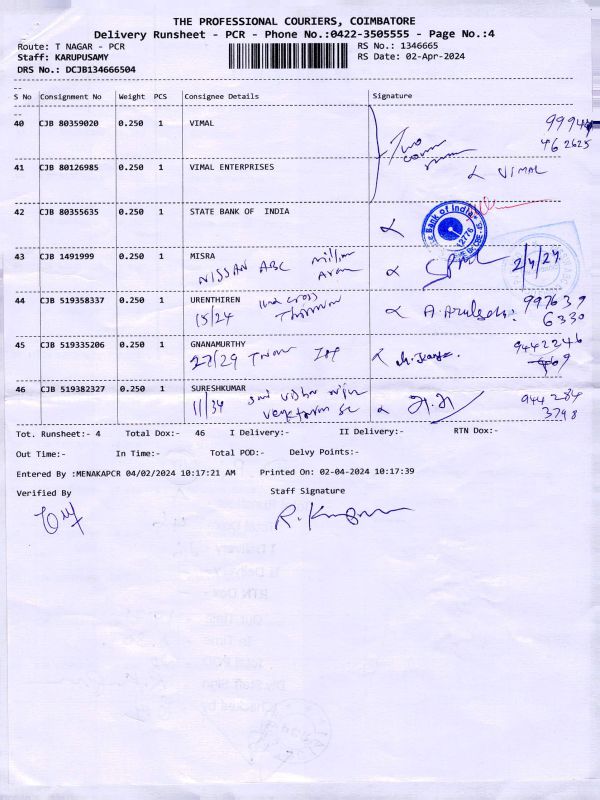 THE PROFESSIONAL COURIERS, COIMBATORE
Delivery Runsheet - PCR - Phone No.:0422-3505555 - Page No.:4
Route: T NAGAR - PCR RS No.: 1346665
Staff: KARUPUSAMY RS Date: 02-Apr-2024
DRS No.: DCJB134666504
S No Consignment No Weight PCS Consignee Details Signature
40 CJB 80359020 0.250 1 VIMAL
462625
41 CJB 80126985 0.250 1 VIMAL ENTERPRISES VIMAL
42 CJB 80355635 0.250 1 STATE BANK OF INDIA
Bank of India
12776
43 CJB 1491999 0.250 1 MISRA
NISSAN ABC 2/4/24
44 CJB 519358337 0.250 1 URENTHIREN
15/24 997639
6330
45 CJB 519335206 0.250 1 GNANAMURTHY 9442246
27/29
46 CJB 519382327 0.250 1 SURESHKUMAR
11/34 944 284
3798
Tot. Runsheet:- 4 Total Dox:- 46 I Delivery:- II Delivery:- RTN Dox:-
Out Time:- In Time:- Total POD:- Delvy Points:-
Entered By :MENAKAPCR 04/02/2024 10:17:21 AM Printed On: 02-04-2024 10:17:39
Verified By Staff Signature